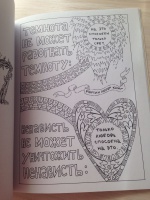 ТЕМНОТА
НЕ МОЖЕТ
РАЗОГНАТЬ
ТЕМНОТУ:
НА ЭТО
СПОСОБЕН
ТОЛЬКО
СВЕТ.
НЕНАВИСТЬ
НЕ МОЖЕТ
УНИЧТОЖИТЬ
НЕНАВИСТЬ:
ТОЛЬКО
ЛЮБОВЬ
СПОСОБНА
НА ЭТО